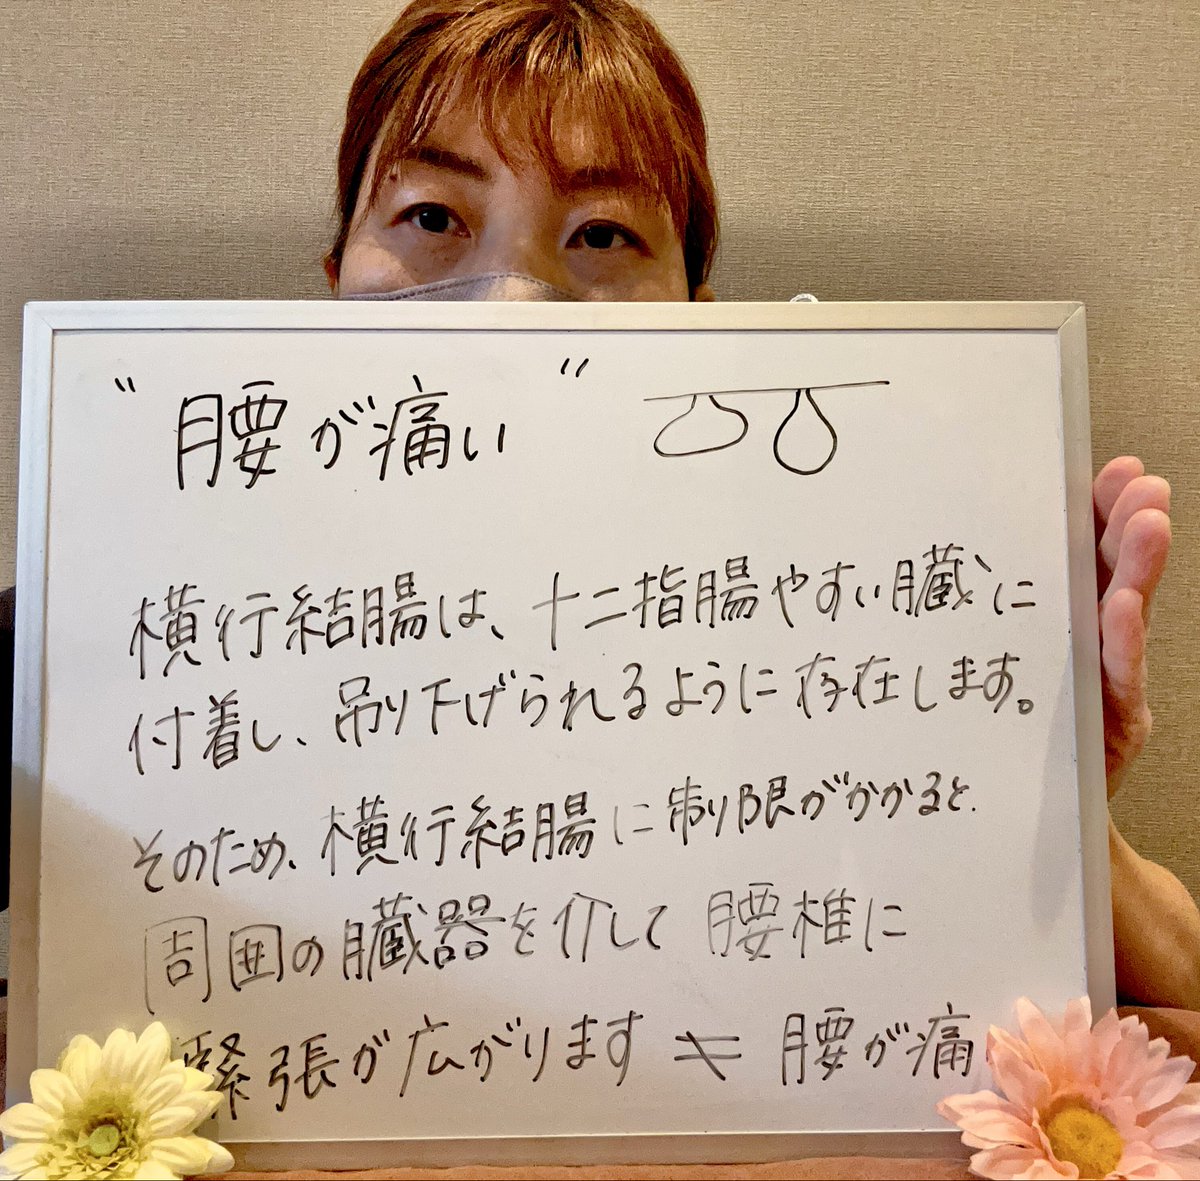 "腰が痛い"
横行結腸は、十二指腸やすい臓に
付着し、吊り下げられるように存在します。
そのため、横行結腸に制限がかかると、
周囲の臓器を介して腰椎に
緊張が広がります ≠ 腰が痛